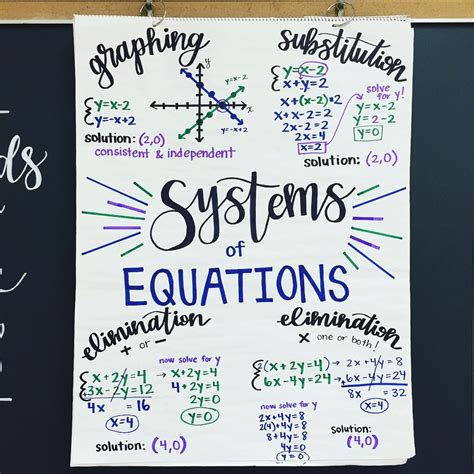 graphing
y=x-2
y
x
y=x-2
y=-x+2
y=-x+2
solution: (2,0)
consistent & independent
substitution
y=x-2
x+y=2
x+(x-2)=2
2x-2=2
2x=4
x=2
solve
for y!
y=x-2
y=2-2
y=0
solution: (2,0)
Systems
of
EQUATIONS
elimination
+ or -
x+2y=4
3x-2y=12
4x = 16
x=4
now solve for y
x+2y=4
4+2y=4
2y=0
y=0
solution: (4,0)
elimination
x one or both!
2(x+2y=4)
6x-4y=24
2x+4y=8
+6x-4y=24
8x = 32
x=4
now solve
for y
2x+4y=8
2(4)+4y=8
8+4y=8
4y=0
y=0
solution:
(4,0)